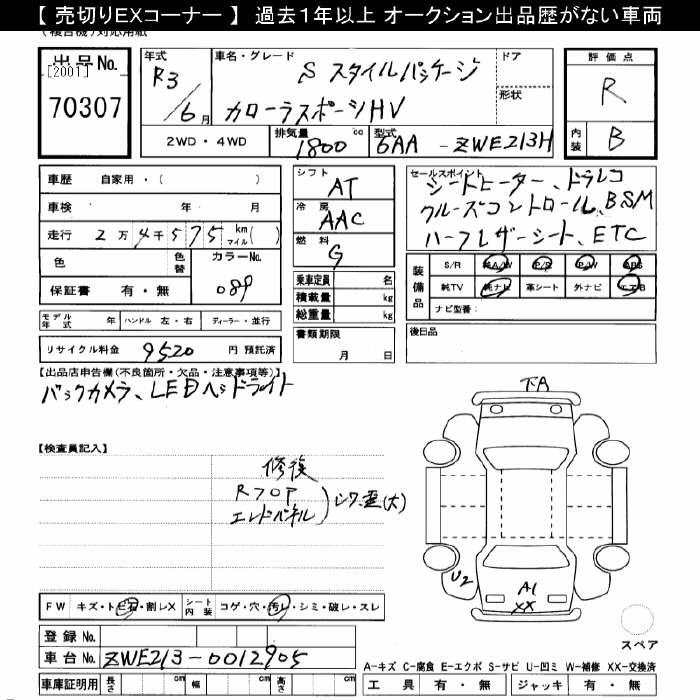 【 売切りEXコーナー 】 過去1年以上 オークション出品歴がない車両
(複合機)対応用紙
出品No. [2001] 70307
年式 R3/6月
車名・グレード S スタイルパッケージ
カローラスポーツHV
ドア
形状
2WD・4WD 排気量 1800 cc 型式 6AA - ZWE213H
評価点 R
内装 B
車歴 自家用・( )
車検 年 月
走行 2万4千575 km マイル( )
色 色替 カラーNo. 089
保証書 有・無
モデル年式 年 ハンドル 左・右 ディーラー・並行
リサイクル料金 9520 円 預託済
シフト AT
冷房 AAC
燃料 G
乗車定員 名
積載量 kg
総重量 kg
書類期限 月 日
セールスポイント
シートヒーター、ドラレコ
クルーズコントロール、BSM
ハーフレザーシート、ETC
装備品 S/R 純A/W P/S P/W ABS
純TV 純ナビ 革シート 外ナビ エアB
ナビ型番:
後日品
【出品店申告欄(不良箇所・欠品・注意事項等)】
バックカメラ、LEDヘッドライト
【検査員記入】
修復
Rフロア
エンドパネル
)シワ、歪(大)
下A
U2
A1
XX
スペア
FW キズ・トビ石・割レX シート内装 コゲ・穴・汚レ・シミ・破レ・スレ
登録No.
車台No. ZWE213-0012905
車庫証明用 長さ cm 幅 cm 高さ cm
A-キズ C-腐食 E-エクボ S-サビ U-凹ミ W-補修 XX-交換済
工具 有・無 ジャッキ 有・無